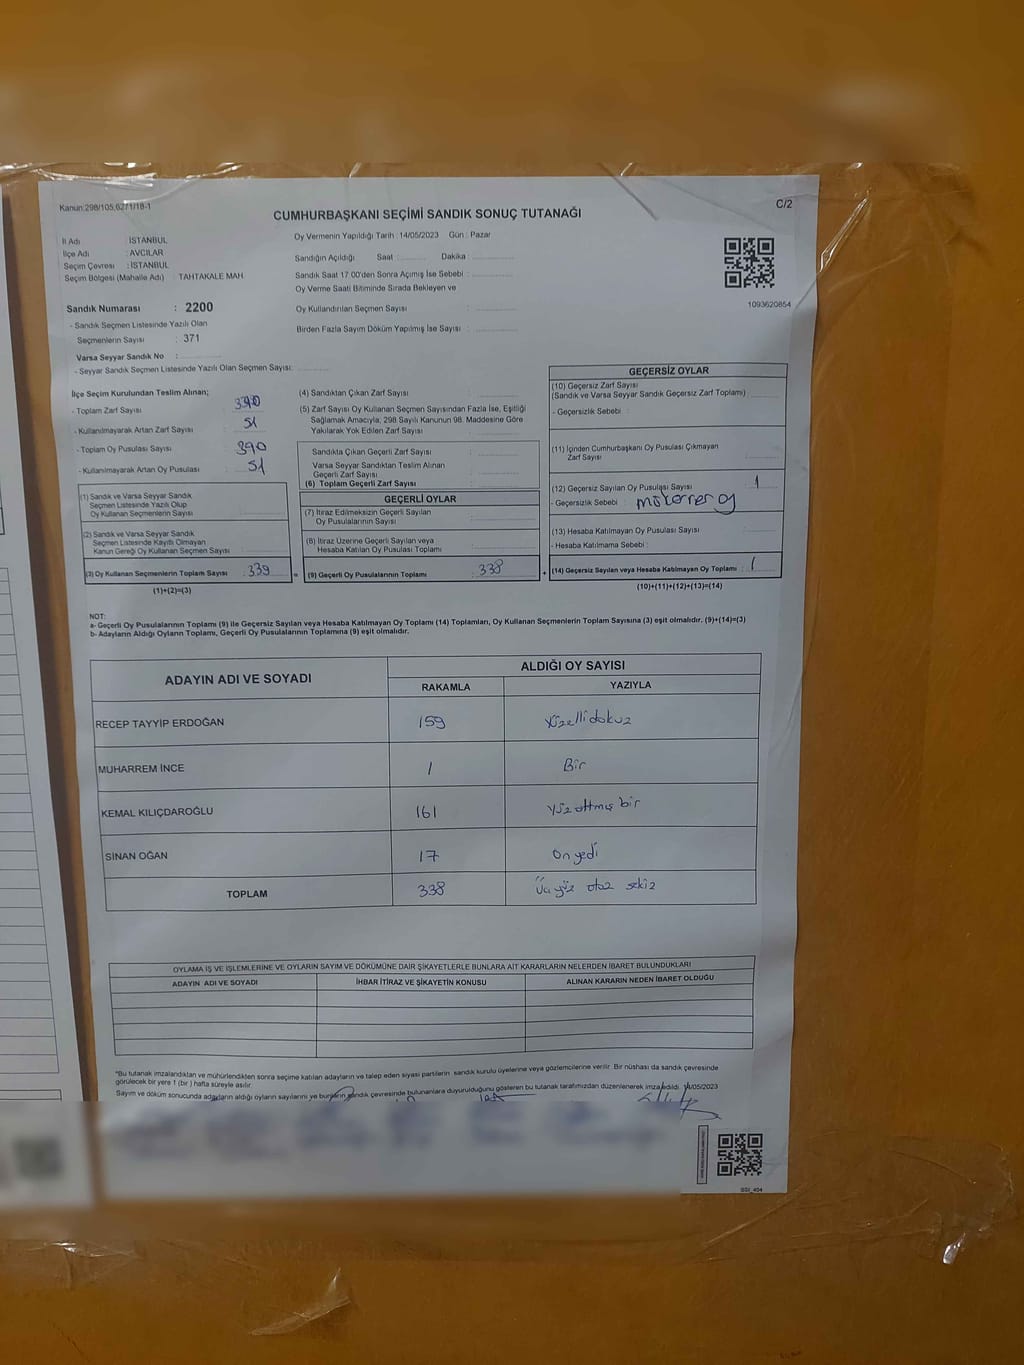 Kanun:298/105,6271/18-1
C/2
CUMHURBAŞKANI SEÇİMİ SANDIK SONUÇ TUTANAĞI
İl Adı : İSTANBUL
İlçe Adı : AVCILAR
Seçim Çevresi : İSTANBUL
Seçim Bölgesi (Mahalle Adı) : TAHTAKALE MAH
Sandık Numarası : 2200
- Sandık Seçmen Listesinde Yazılı Olan
Seçmenlerin Sayısı : 371
Varsa Seyyar Sandık No :
- Seyyar Sandık Seçmen Listesinde Yazılı Olan Seçmen Sayısı:
Oy Vermenin Yapıldığı Tarih : 14/05/2023 Gün : Pazar
Sandığın Açıldığı Saat : Dakika :
Sandık Saat 17.00'den Sonra Açılmış İse Sebebi :
Oy Verme Saati Bitiminde Sırada Bekleyen ve
Oy Kullandırılan Seçmen Sayısı :
Birden Fazla Sayım Döküm Yapılmış İse Sayısı :
1093620854
İlçe Seçim Kurulundan Teslim Alınan;
- Toplam Zarf Sayısı : 390
- Kullanılmayarak Artan Zarf Sayısı : 51
- Toplam Oy Pusulası Sayısı : 390
- Kullanılmayarak Artan Oy Pusulası : 51
(1) Sandık ve Varsa Seyyar Sandık
Seçmen Listesinde Yazılı Olup
Oy Kullanan Seçmenlerin Sayısı :
(2) Sandık ve Varsa Seyyar Sandık
Seçmen Listesinde Kayıtlı Olmayan
Kanun Gereği Oy Kullanan Seçmen Sayısı :
(3) Oy Kullanan Seçmenlerin Toplam Sayısı : 339
(1)+(2)=(3)
(4) Sandıktan Çıkan Zarf Sayısı :
(5) Zarf Sayısı Oy Kullanan Seçmen Sayısından Fazla İse, Eşitliği
Sağlamak Amacıyla, 298 Sayılı Kanunun 98. Maddesine Göre
Yakılarak Yok Edilen Zarf Sayısı :
Sandıkta Çıkan Geçerli Zarf Sayısı :
Varsa Seyyar Sandıktan Teslim Alınan
Geçerli Zarf Sayısı :
(6) Toplam Geçerli Zarf Sayısı :
GEÇERLİ OYLAR
(7) İtiraz Edilmeksizin Geçerli Sayılan
Oy Pusulalarının Sayısı :
(8) İtiraz Üzerine Geçerli Sayılan veya
Hesaba Katılan Oy Pusulası Toplamı :
= (9) Geçerli Oy Pusulalarının Toplamı : 338
GEÇERSİZ OYLAR
(10) Geçersiz Zarf Sayısı
(Sandık ve Varsa Seyyar Sandık Geçersiz Zarf Toplamı) :
- Geçersizlik Sebebi :
(11) İçinden Cumhurbaşkanı Oy Pusulası Çıkmayan
Zarf Sayısı :
(12) Geçersiz Sayılan Oy Pusulası Sayısı : 1
- Geçersizlik Sebebi : mükerrer oy
(13) Hesaba Katılmayan Oy Pusulası Sayısı :
- Hesaba Katılmama Sebebi :
+ (14) Geçersiz Sayılan veya Hesaba Katılmayan Oy Toplamı : 1
(10)+(11)+(12)+(13)=(14)
NOT:
a- Geçerli Oy Pusulalarının Toplamı (9) ile Geçersiz Sayılan veya Hesaba Katılmayan Oy Toplamı (14) Toplamları, Oy Kullanan Seçmenlerin Toplam Sayısına (3) eşit olmalıdır. (9)+(14)=(3)
b- Adayların Aldığı Oyların Toplamı, Geçerli Oy Pusulalarının Toplamına (9) eşit olmalıdır.
ADAYIN ADI VE SOYADI ALDIĞI OY SAYISI
RAKAMLA YAZIYLA
RECEP TAYYİP ERDOĞAN 159 Yüzellidokuz
MUHARREM İNCE 1 Bir
KEMAL KILIÇDAROĞLU 161 Yüz altmış bir
SİNAN OĞAN 17 On yedi
TOPLAM 338 Üç yüz otuz sekiz
OYLAMA İŞ VE İŞLEMLERİNE VE OYLARIN SAYIM VE DÖKÜMÜNE DAİR ŞİKAYETLERLE BUNLARA AİT KARARLARIN NELERDEN İBARET BULUNDUKLARI
ADAYIN ADI VE SOYADI İHBAR İTİRAZ VE ŞİKAYETİN KONUSU ALINAN KARARIN NEDEN İBARET OLDUĞU
*Bu tutanak imzalandıktan ve mühürlendikten sonra seçime katılan adayların ve talep eden siyasi partilerin sandık kurulu üyelerine veya gözlemcilerine verilir. Bir nüshası da sandık çevresinde
görülecek bir yere 1 (bir ) hafta süreyle asılır.
Sayım ve döküm sonucunda adayların aldığı oyların sayılarını ve bunların sandık çevresinde bulunanlara duyurulduğunu gösteren bu tutanak tarafımızdan düzenlenerek imzalandı. /05/2023